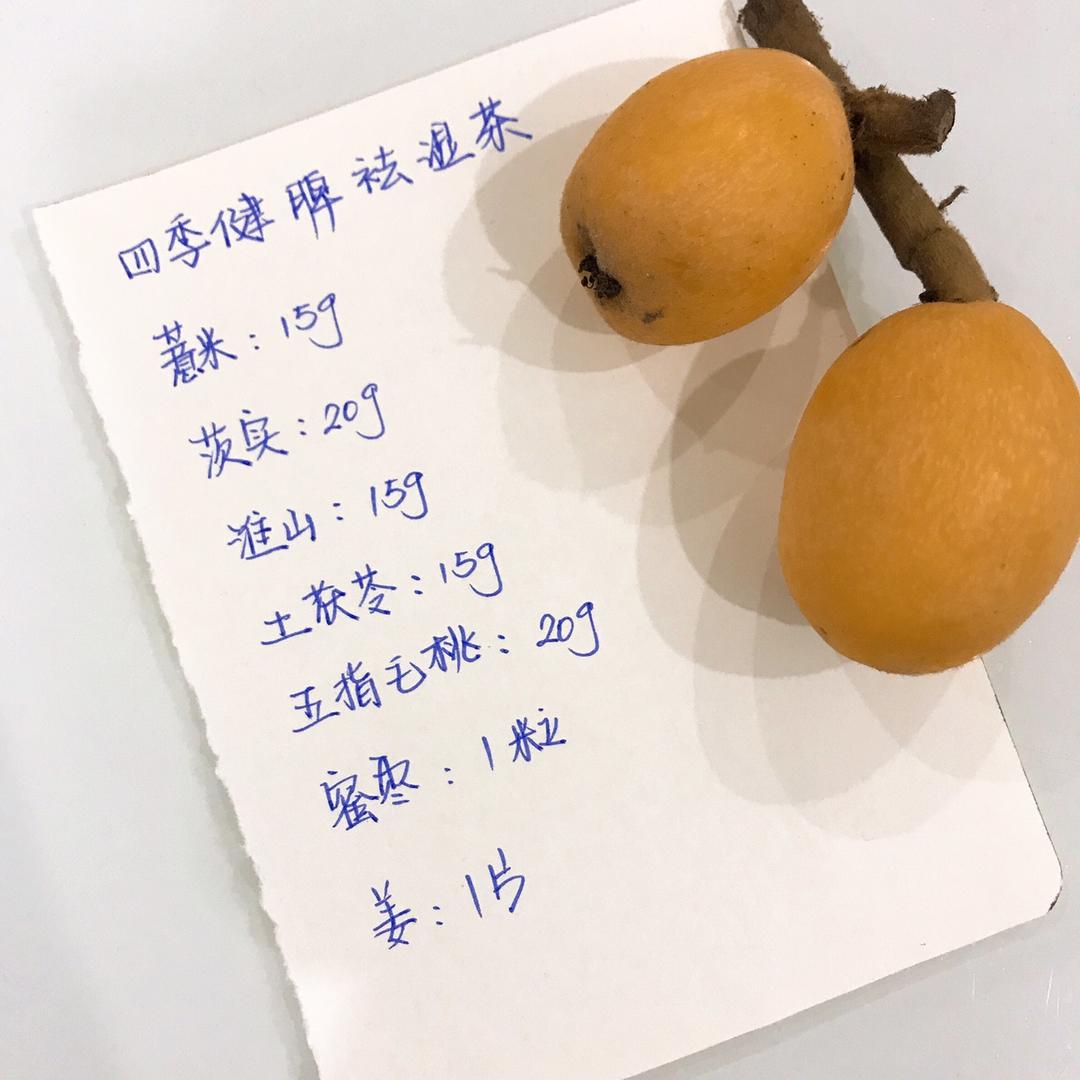 四季健脾祛湿茶
薏米：15g
茨实：20g
淮山：15g
土茯苓：15g
五指毛桃：20g
蜜枣：1粒
姜：1片